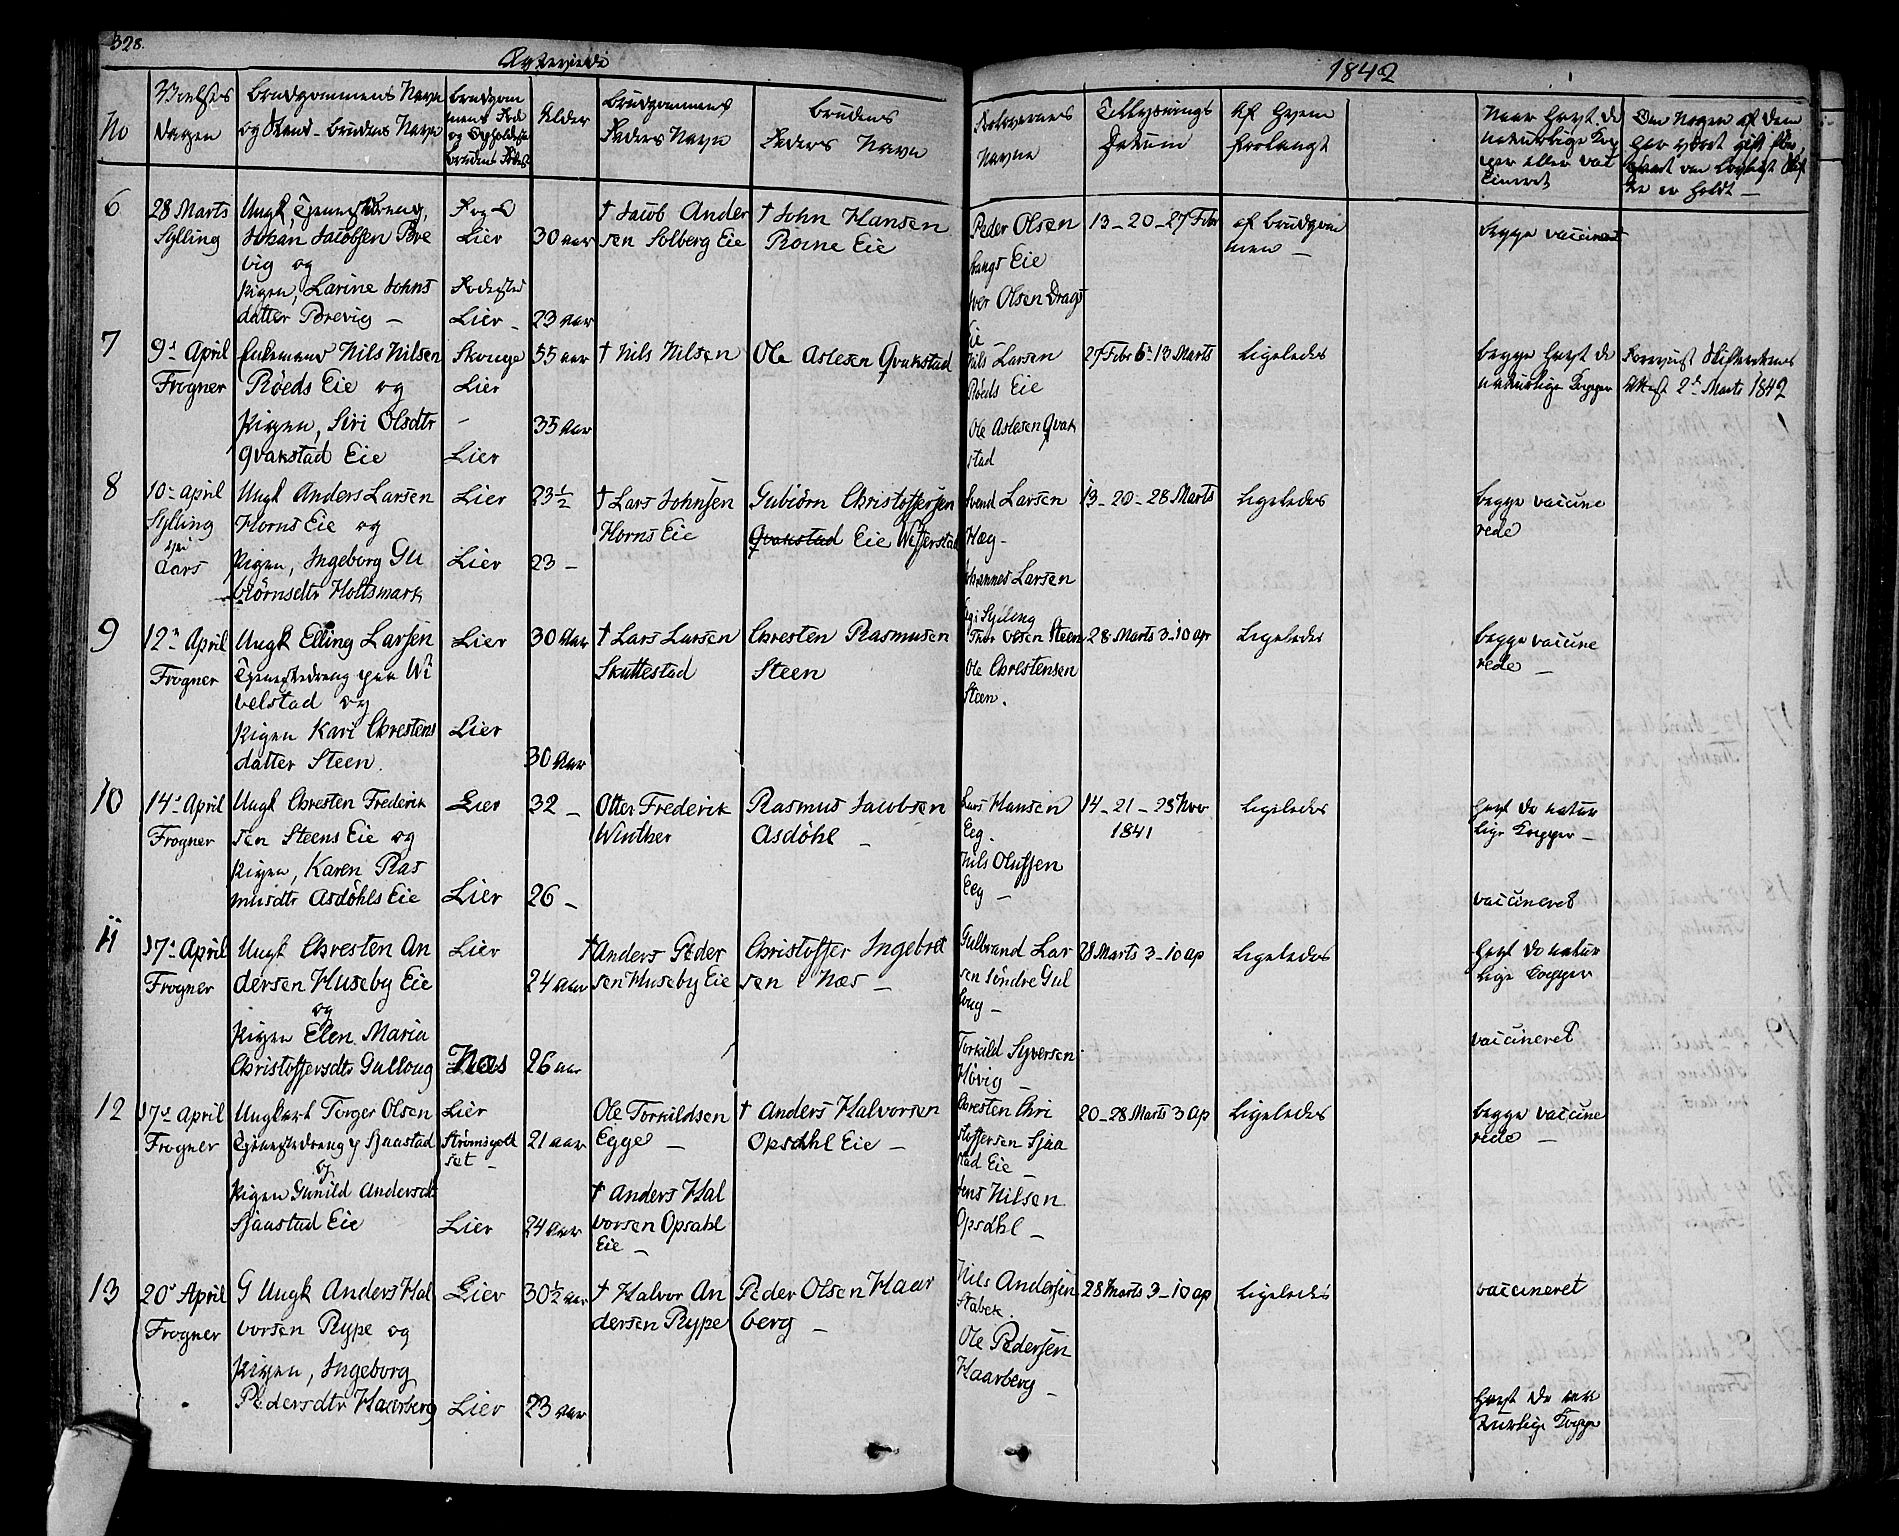 328.
Egteviede
1842
No
Vielses
Dagen
Brudgommens Navn
og Stand – Brudens Navn
Brudgom
mens Føde
og Opholdsst
Brudens Fødest
Alder
Brudgommens
Faders Navn
Brudens
Faders Navn
Forlovernes
Navne
Tillysnings
Datum
Af Hvem
forlangt
Naar havt de
naturlige Kop
per eller vac
cineret
Om Nogen af dem
har været gift før,
hvorvidt Skif
te er holdt –
6
28 Marts
Sylling
Ungk, Tjenestedreng,
Johan Jacobsen Bre
vig og
Pigen, Larine Johns
datter Brevig –
F og O
Lier
Fødested
Lier –
30 aar
23 aar
† Jacob Ander
sen Solberg Eie
† John Hansen
Roine Eie
Peder Olsen
Bangs Eie
Iver Olsen Drags
Eie –
13 – 20 – 27 Febr
af Brudgom
men –
begge vaccineret
7
9de April
Frogner
Enkemand Nils Nilsen
Røeds Eie og
Pigen, Siri Olsdtr
Qvakstad Eie
Skouge
Lier
–
Lier
55 aar
35 aar
† Nils Nilsen
Ole Aslesen Qvakstad
Nils Larsen
Røeds Eie
Ole Aslesen Qvak
stad
27 Febr 6–13 Marts
Ligeledes
begge havt de
naturlige Kopper
Forevist Skifterettens
Attest 2d Marts 1842
8
10de April
Sylling
Aars
Ungk Anders Larsen
Horns Eie og
Pigen, Ingeborg Gu
biörnsdtr Holtsmark
Lier
Lier
23 1/2
23 –
† Lars Johnsen
Horns Eie
Gubiörn Christoffersen
Qvakstad Eie Wefferstad
Svend Larsen
Hæg –
Johannes Larsen
Egi Sylling
13 – 20 – 28 Marts
Ligeledes
begge vaccine
rede
9
12te April
Frogner
Ungk Elling Larsen
Tjenestedreng paa Wi
velstad og
Pigen Kari Chrestens
datter Steen.
Lier
Lier
30 aar
30 aar
† Lars Larsen
Skuttestad
Chresten Rasmusen
Steen
Thor Olsen Steen
Ole Chrestensen
Steen.
28 Marts 3–10 Apr
Ligeledes
begge vaccine
rede –
10
14de April
Frogner
Ungk Chresten Frederik
sen Steens Eie og
Pigen, Karen Ras
musdtr Asdöhls Eie
Lier
Lier
32 –
26 –
Otter Frederik
Winther
Rasmus Jacobsen
Asdöhl –
Lars Hansen
Eeg –
Nils Olufsen
Eeg –
14 – 21 – 28 Nov
1841
Ligeledes
havt de natur
lige Kopper –
vaccineret
11
17de April
Frogner
Ungk Chresten An
dersen Huseby Eie
og
Pigen Elen Maria
Christoffersdtr Gulloug
Lier
Næs
24 aar
26 aar
† Anders Peder
sen Huseby Eie
Christoffer Ingebret
sen Næs –
Gulbrand Lar
sen Søndre Gul
loug –
Torkild Syversen
Hövig –
28 Marts 3–10 Ap
Ligeledes
havt de natur
lige Kopper
vaccineret
12
17de April
Frogner
Ungkarl Torger Olsen
Tjenestedreng p Sjaastad
og
Pigen Gunild Andersdtr
Sjaastad Eie
Lier
Strömsgodt
set –
Lier
21 aar
24 aar
Ole Torkildsen
Egge –
† Anders Hal
vorsen Opsahl
Eie –
† Anders Halvorsen
Opsdhl Eie –
Chresten Chri
stoffersen Sjaa
stad Eie –
Jens Nilsen
Opsdhl –
20 – 28 Marts 3 Ap
Ligeledes
begge vaccine
rede –
13
20de April
Frogner
G Ungk Anders Hal
vorsen Rype og
Pigen, Ingeborg
Pedersdtr Haarberg
Lier
Lier
30 1/2 aar
23 aar
† Halvor An
dersen Rype
Peder Olsen Haar
berg –
Nils Andersen
Stabek.
Ole Pedersen
Haarberg –
28 Marts 3–10 Ap
Ligeledes
vaccineret
havt de na
turlige Kopper